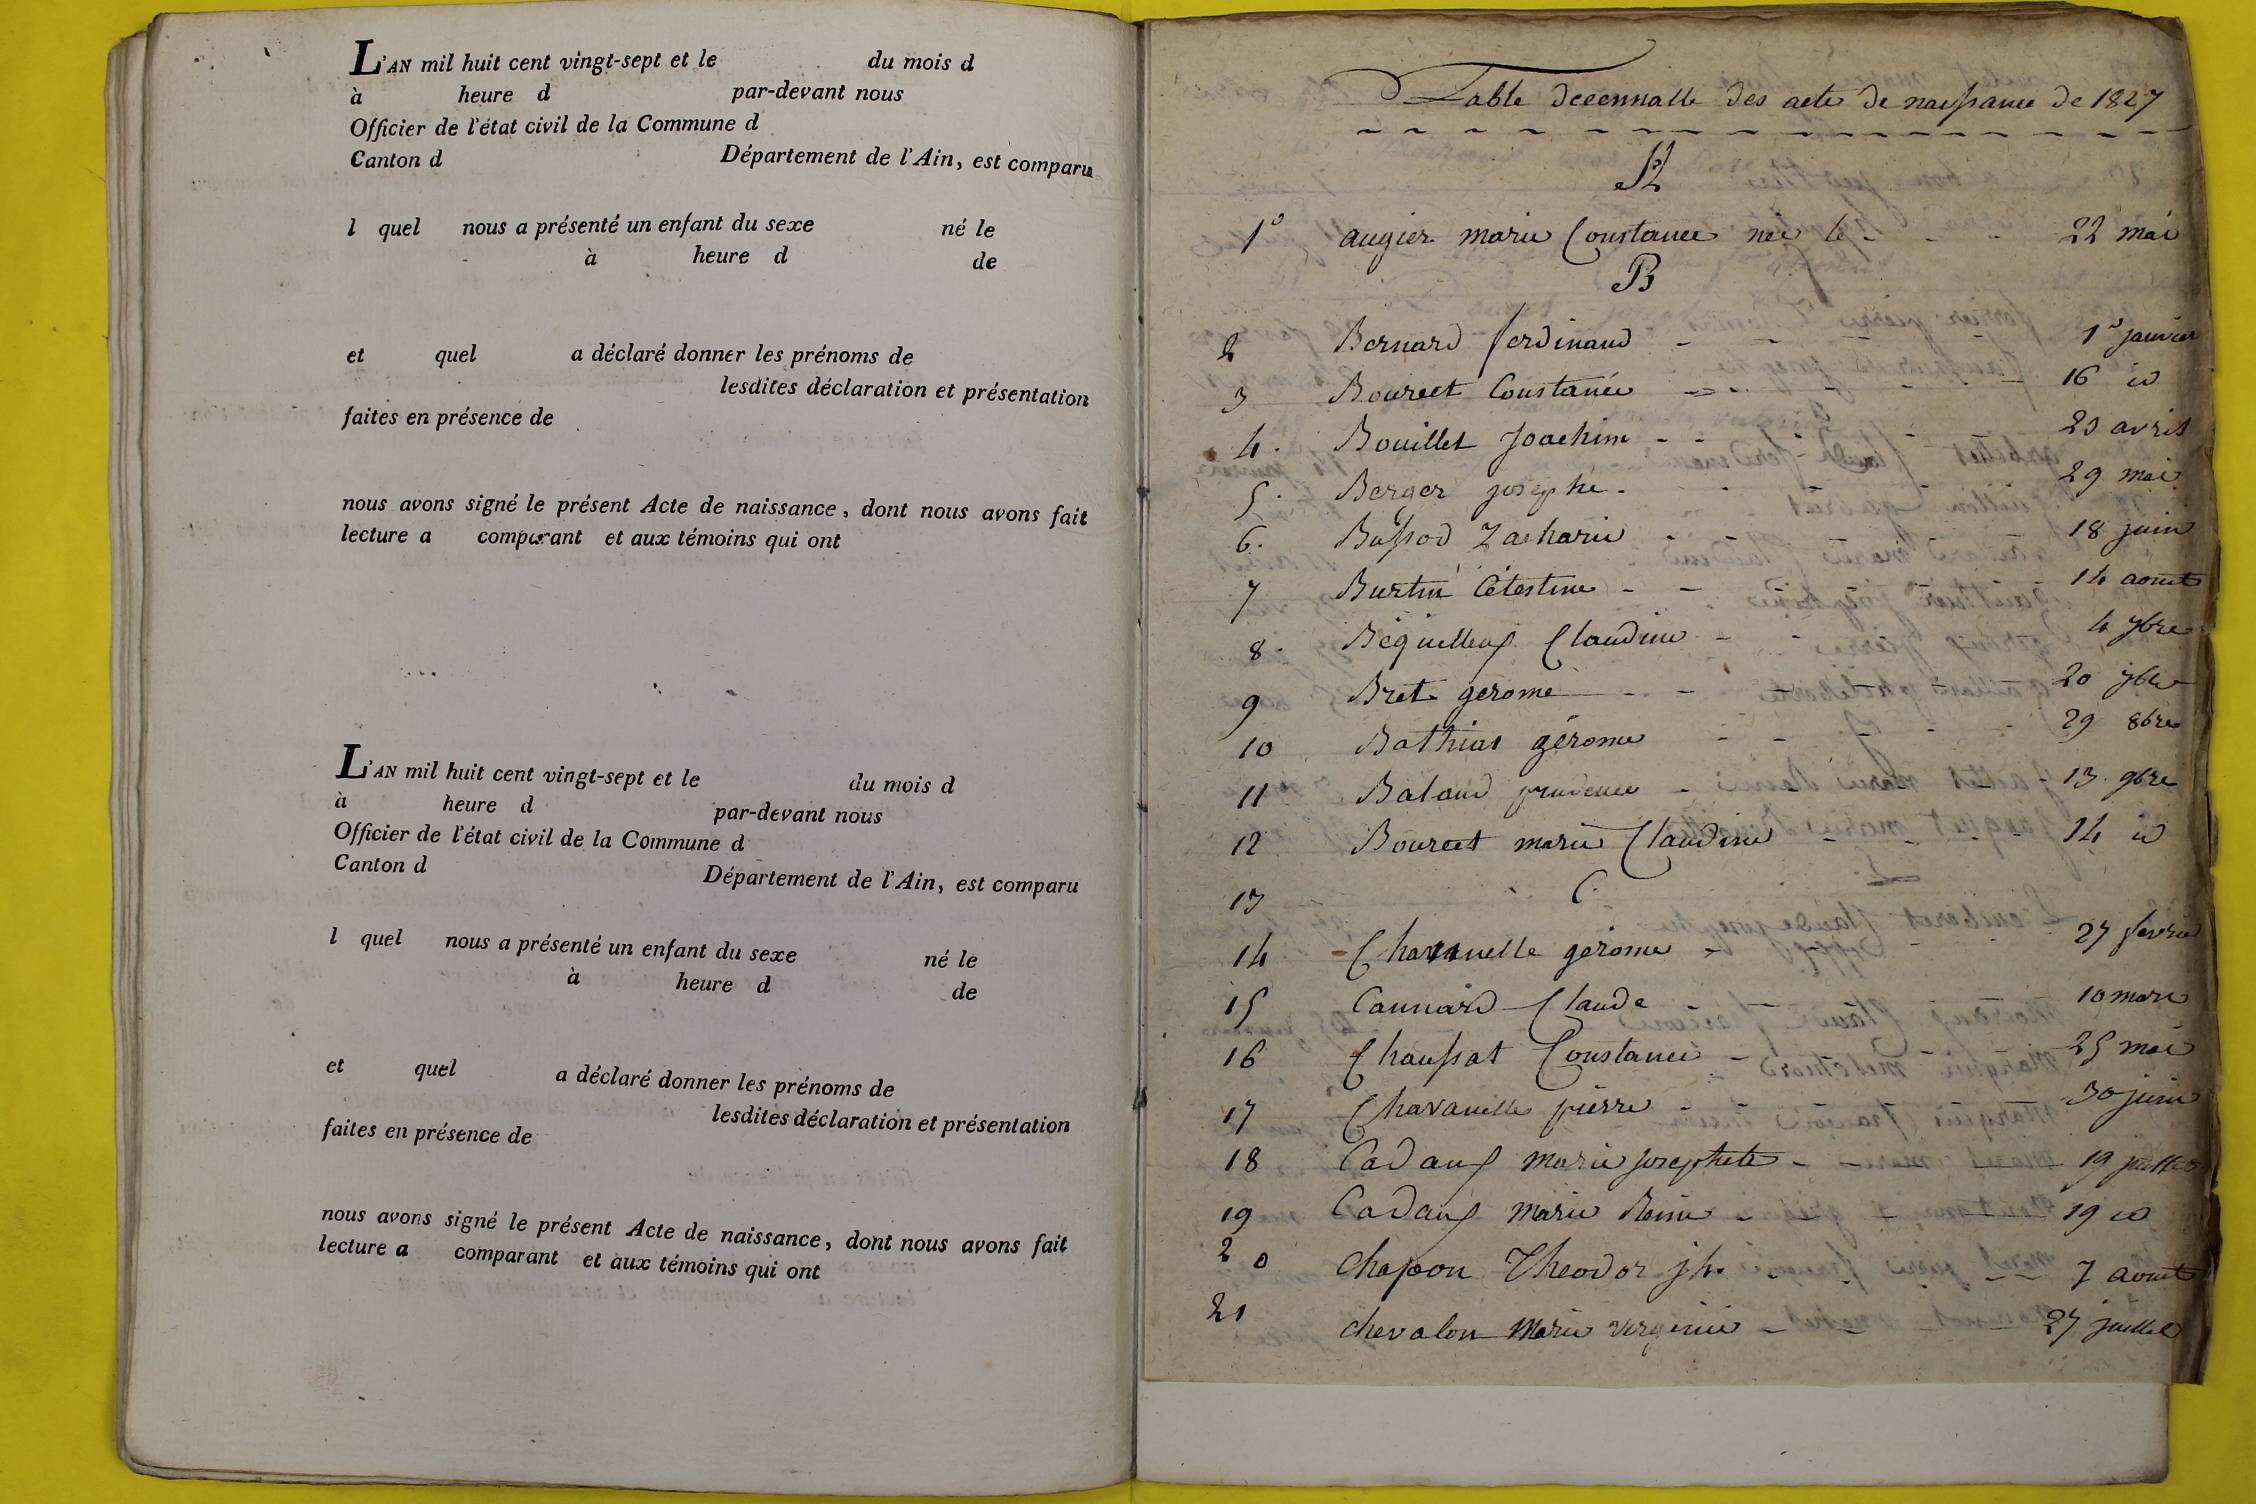 L'AN mil huit cent vingt-sept et le du mois d
à heure d par-devant nous
Officier de l'état civil de la Commune d
Canton d Département de l'Ain, est comparu
l quel nous a présenté un enfant du sexe né le
à heure d de
et quel a déclaré donner les prénoms de
lesdites déclaration et présentation
faites en présence de
nous avons signé le présent Acte de naissance, dont nous avons fait
lecture a comparant et aux témoins qui ont
L'AN mil huit cent vingt-sept et le du mois d
à heure d par-devant nous
Officier de l'état civil de la Commune d
Canton d Département de l'Ain, est comparu
l quel nous a présenté un enfant du sexe né le
à heure d de
et quel a déclaré donner les prénoms de
lesdites déclaration et présentation
faites en présence de
nous avons signé le présent Acte de naissance, dont nous avons fait
lecture a comparant et aux témoins qui ont
Table decennalle des acte de naissance de 1827
A
1° augier marie Constance née le 22 mai
B
2 Bernard ferdinand 1er janvier
3 Bourcet Constance 16 id
4. Bouillet Joachim 20 avril
5. Berger josephe 29 mai
6. Bussod Zacharie 18 juin
7 Burtin Célestine 14 aout
8. Claudine 4 7bre
9 Bret gerome 20 7bre
10 Bathias gérome 29 8bre
11 Baland prudence 13 9bre
12 Bourcet marie Claudine 14 id
13 C.
14 Chavanelle gérome 27 fevrier
15 Cannard Claude 10 mars
16 Chaussat Constance 25 mai
17 Chavanelle pierre 30 juin
18 Cadaux marie Josephete 19 juillet
19 Cadaux marie Reine 19 id
20 Chapon Theodor jh. 7 aout
21 chevalon Marie virginie 27 juillet